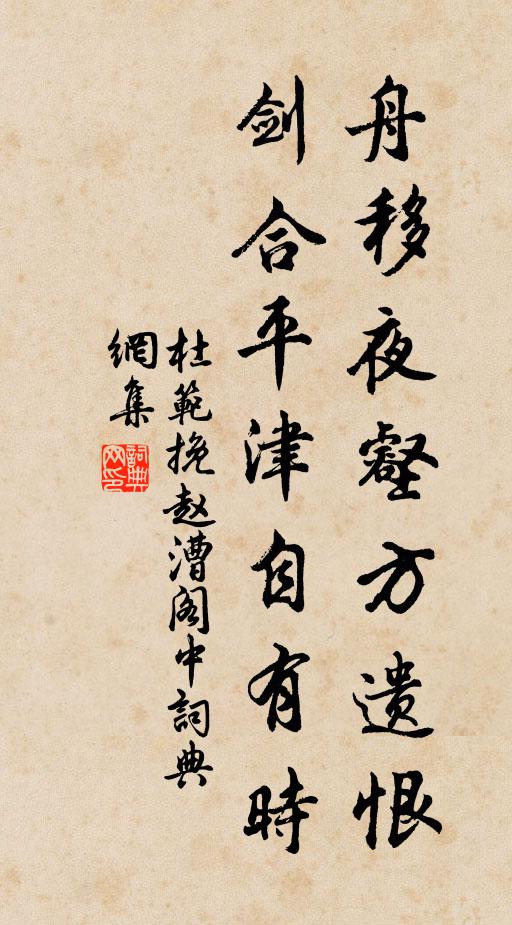 舟移夜壑方遗恨
剑合平津自有時
杜範挽赵漕阁中詞典
網集
詞典网印